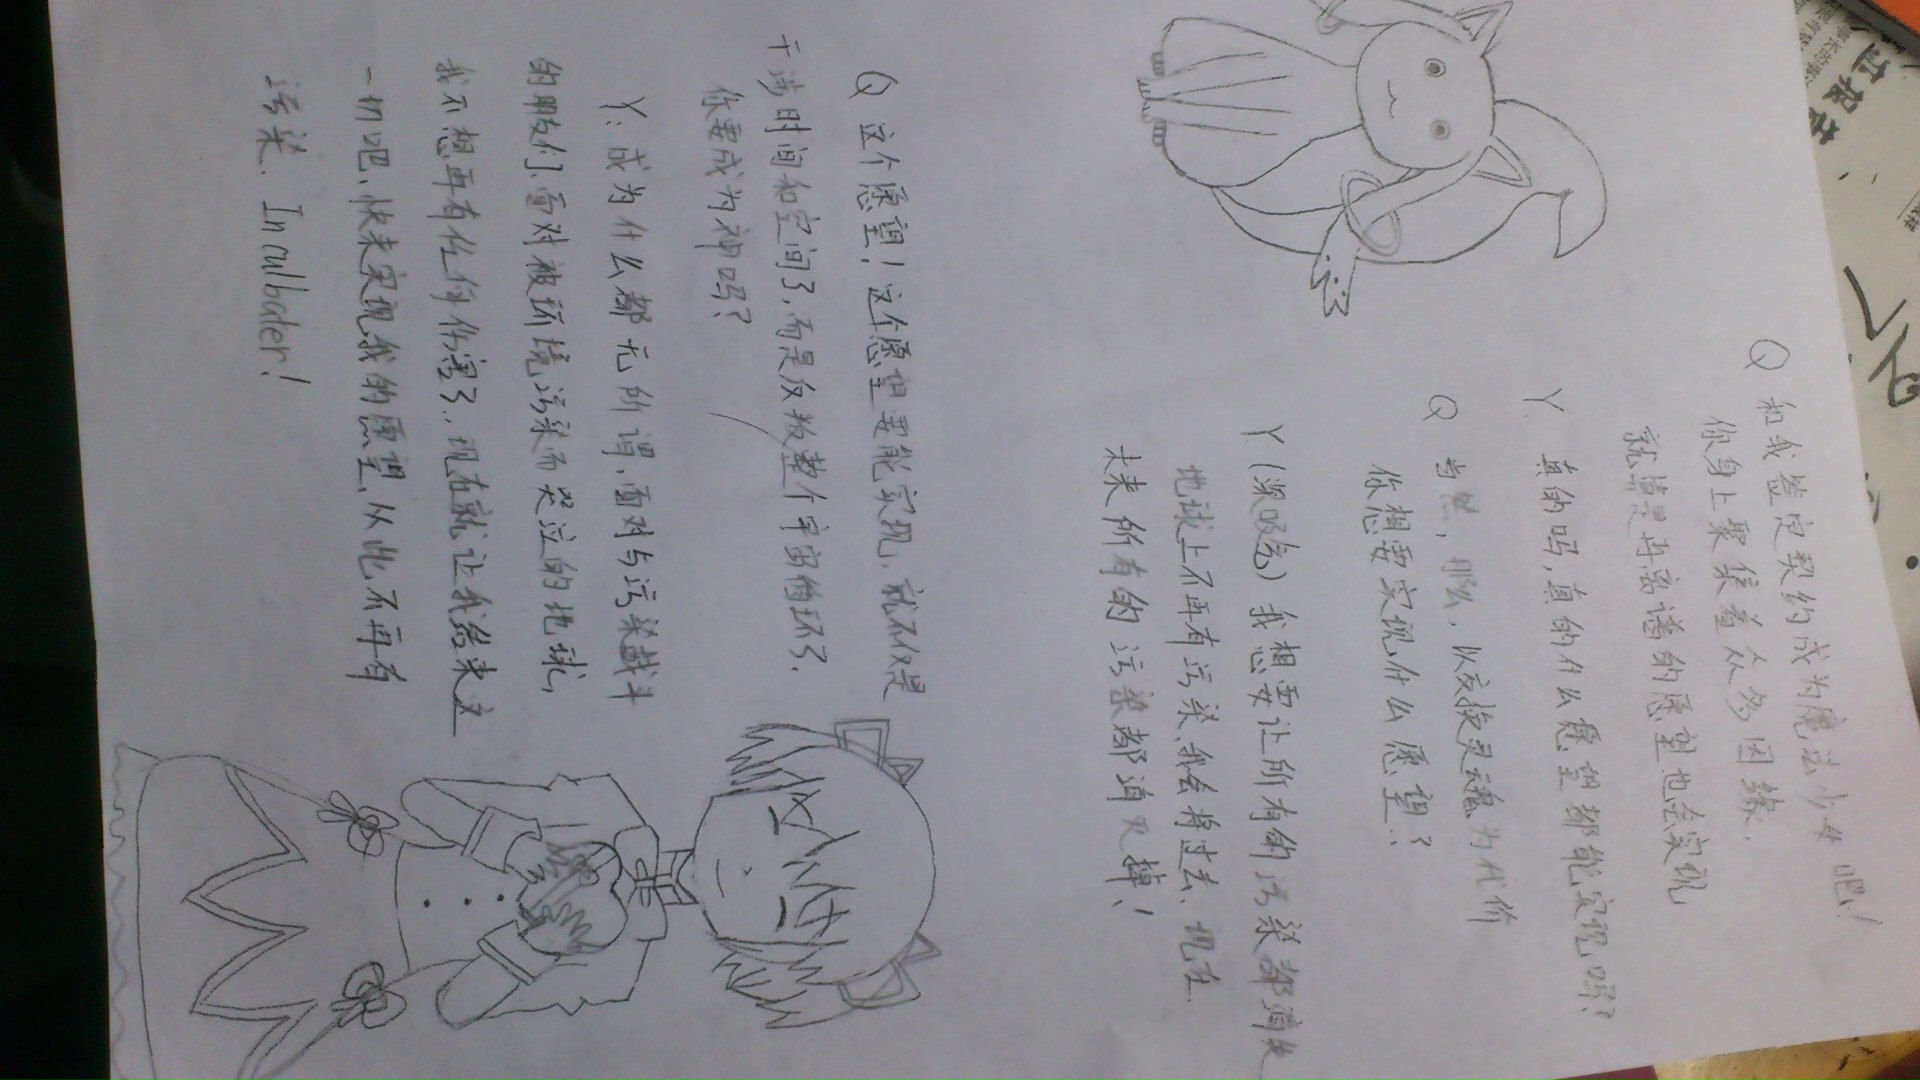 Q 和我签定契约成为魔法少女吧！
你身上聚集着众多因缘，
就算是再离谱的愿望也会实现
Y. 真的吗，真的什么愿望都能实现吗？
Q 当然，那么，以交换灵魂为代价
你想要实现什么愿望？
Y（深吸气）我想要让所有的污染都消失
地球上不再有污染、我会将过去、现在、
未来所有的污染都消灭掉！
Q 这个愿望！这个愿望要能实现，就不仅是
干涉时间和空间了，而是反叛整个宇宙循环了，
你要成为神吗？
Y：成为什么都无所谓、面对与污染战斗
的朋友们、面对被环境污染而哭泣的地球，
我不想再有任何伤害了，现在就让我结束这
一切吧、快来实现我的愿望、从此不再有
污染、Inculbater！